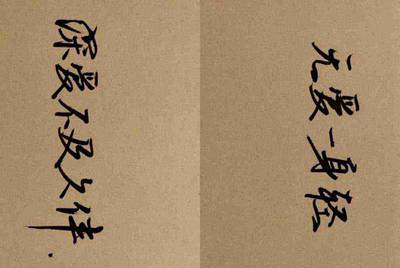 深爱不及久伴.
无爱一身轻